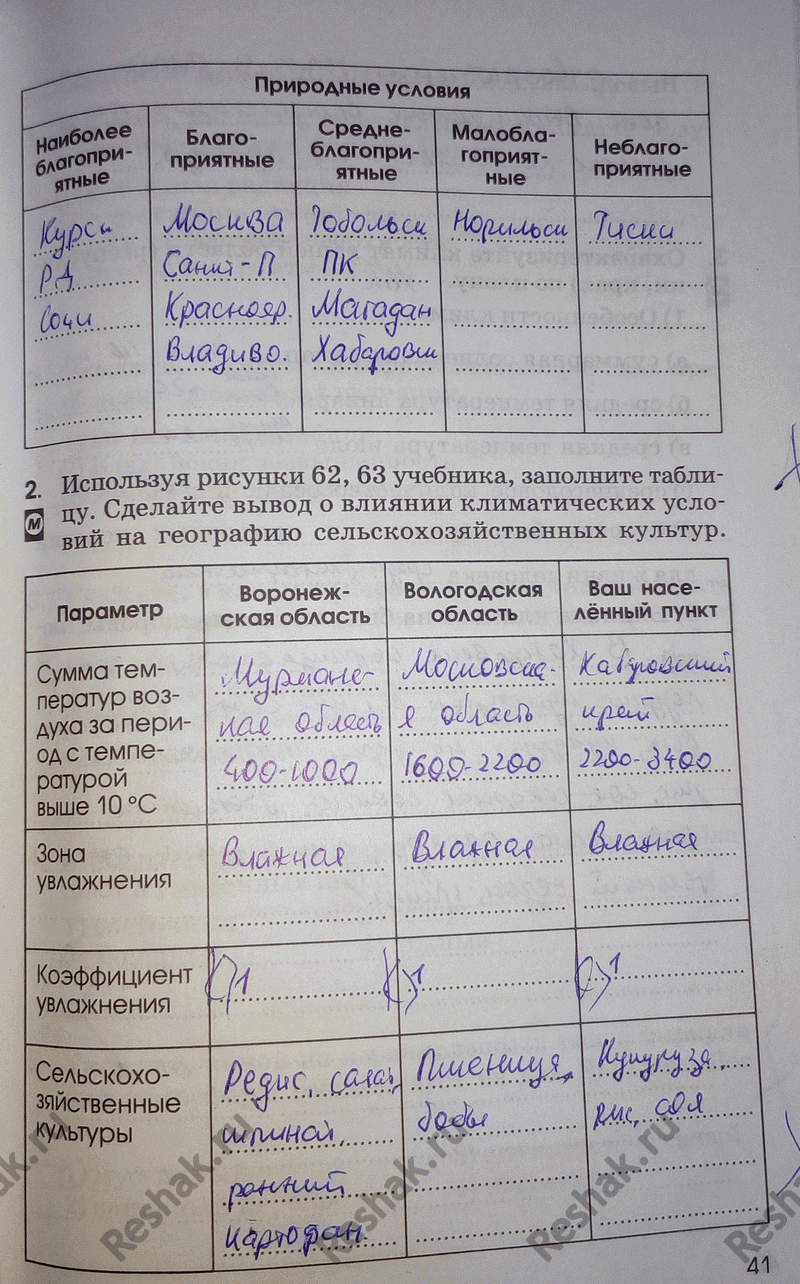 Природные условия
Наиболее благоприятные
Благоприятные
Среднеблагоприятные
Малоблагоприятные
Неблагоприятные
Курск Москва Тобольск Норильск Тикси
РД Санкт-П ПК
Сочи Краснояр. Магадан
Владиво. Хабаровск
2. Используя рисунки 62, 63 учебника, заполните табли-
М цу. Сделайте вывод о влиянии климатических усло-
вий на географию сельскохозяйственных культур.
Параметр
Воронеж-
ская область
Вологодская
область
Ваш насе-
лённый пункт
Сумма тем-
ператур воз-
духа за пери-
од с темпе-
ратурой
выше 10 °C
Мурманс-
кая область
400-1000
Московска-
я область
1600-2200
Хабаровский
край
2200-3400
Зона
увлажнения
Влажная
Влажная
Влажная
Коэффициент
увлажнения
К>1
К>1
К>1
Сельскохо-
зяйственные
культуры
Редис, салат,
шпинат,
ранний
картофан.
Пшеница,
бобы
Кукуруза,
рис, соя
Reshak.ru
Reshak.ru
Reshak.ru
41